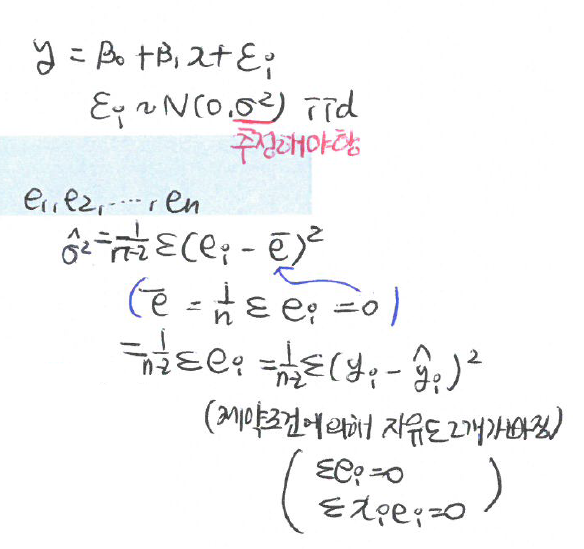 y = β₀ + β₁x + εᵢ
εᵢ ~ N(0, σ²) iid
추정해야함
e₁, e₂, ⋯, eₙ
σ̂² = 1/(n-2) Σ(eᵢ - ē)²
(ē = 1/n Σ eᵢ = 0)
= 1/(n-2) Σ eᵢ = 1/(n-2) Σ(yᵢ - ŷᵢ)²
(제약조건에의해 자유도 2개가빠짐)
(Σeᵢ = 0
Σxᵢeᵢ = 0)